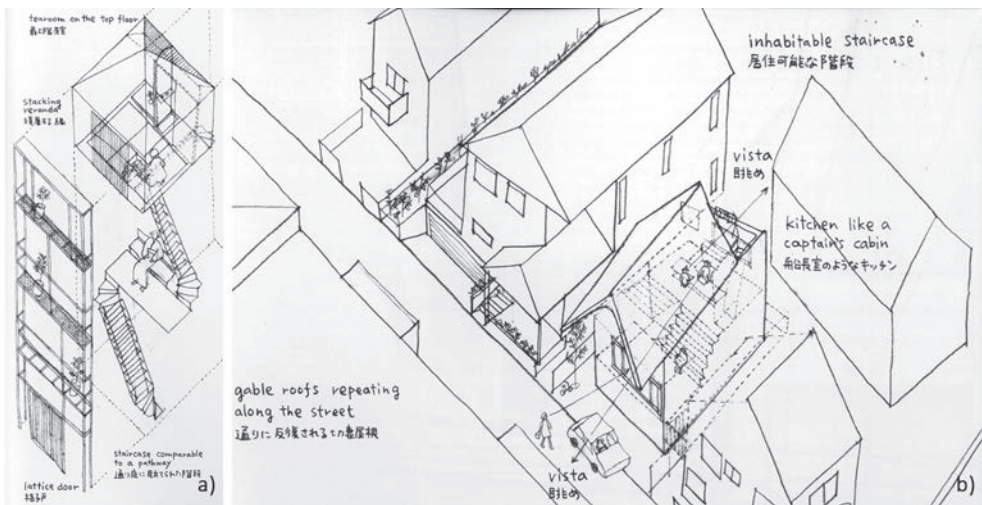 tearoom on the top floor
最上階の茶室
stacking
veranda
積層する縁
staircase comparable
to a pathway
通り庭に見立てられた階段
lattice door
格子戸
a)
inhabitable staircase
居住可能な階段
vista
眺め
kitchen like a
captain's cabin
船長室のようなキッチン
gable roofs repeating
along the street
通りに反復される切妻屋根
vista
眺め
b)